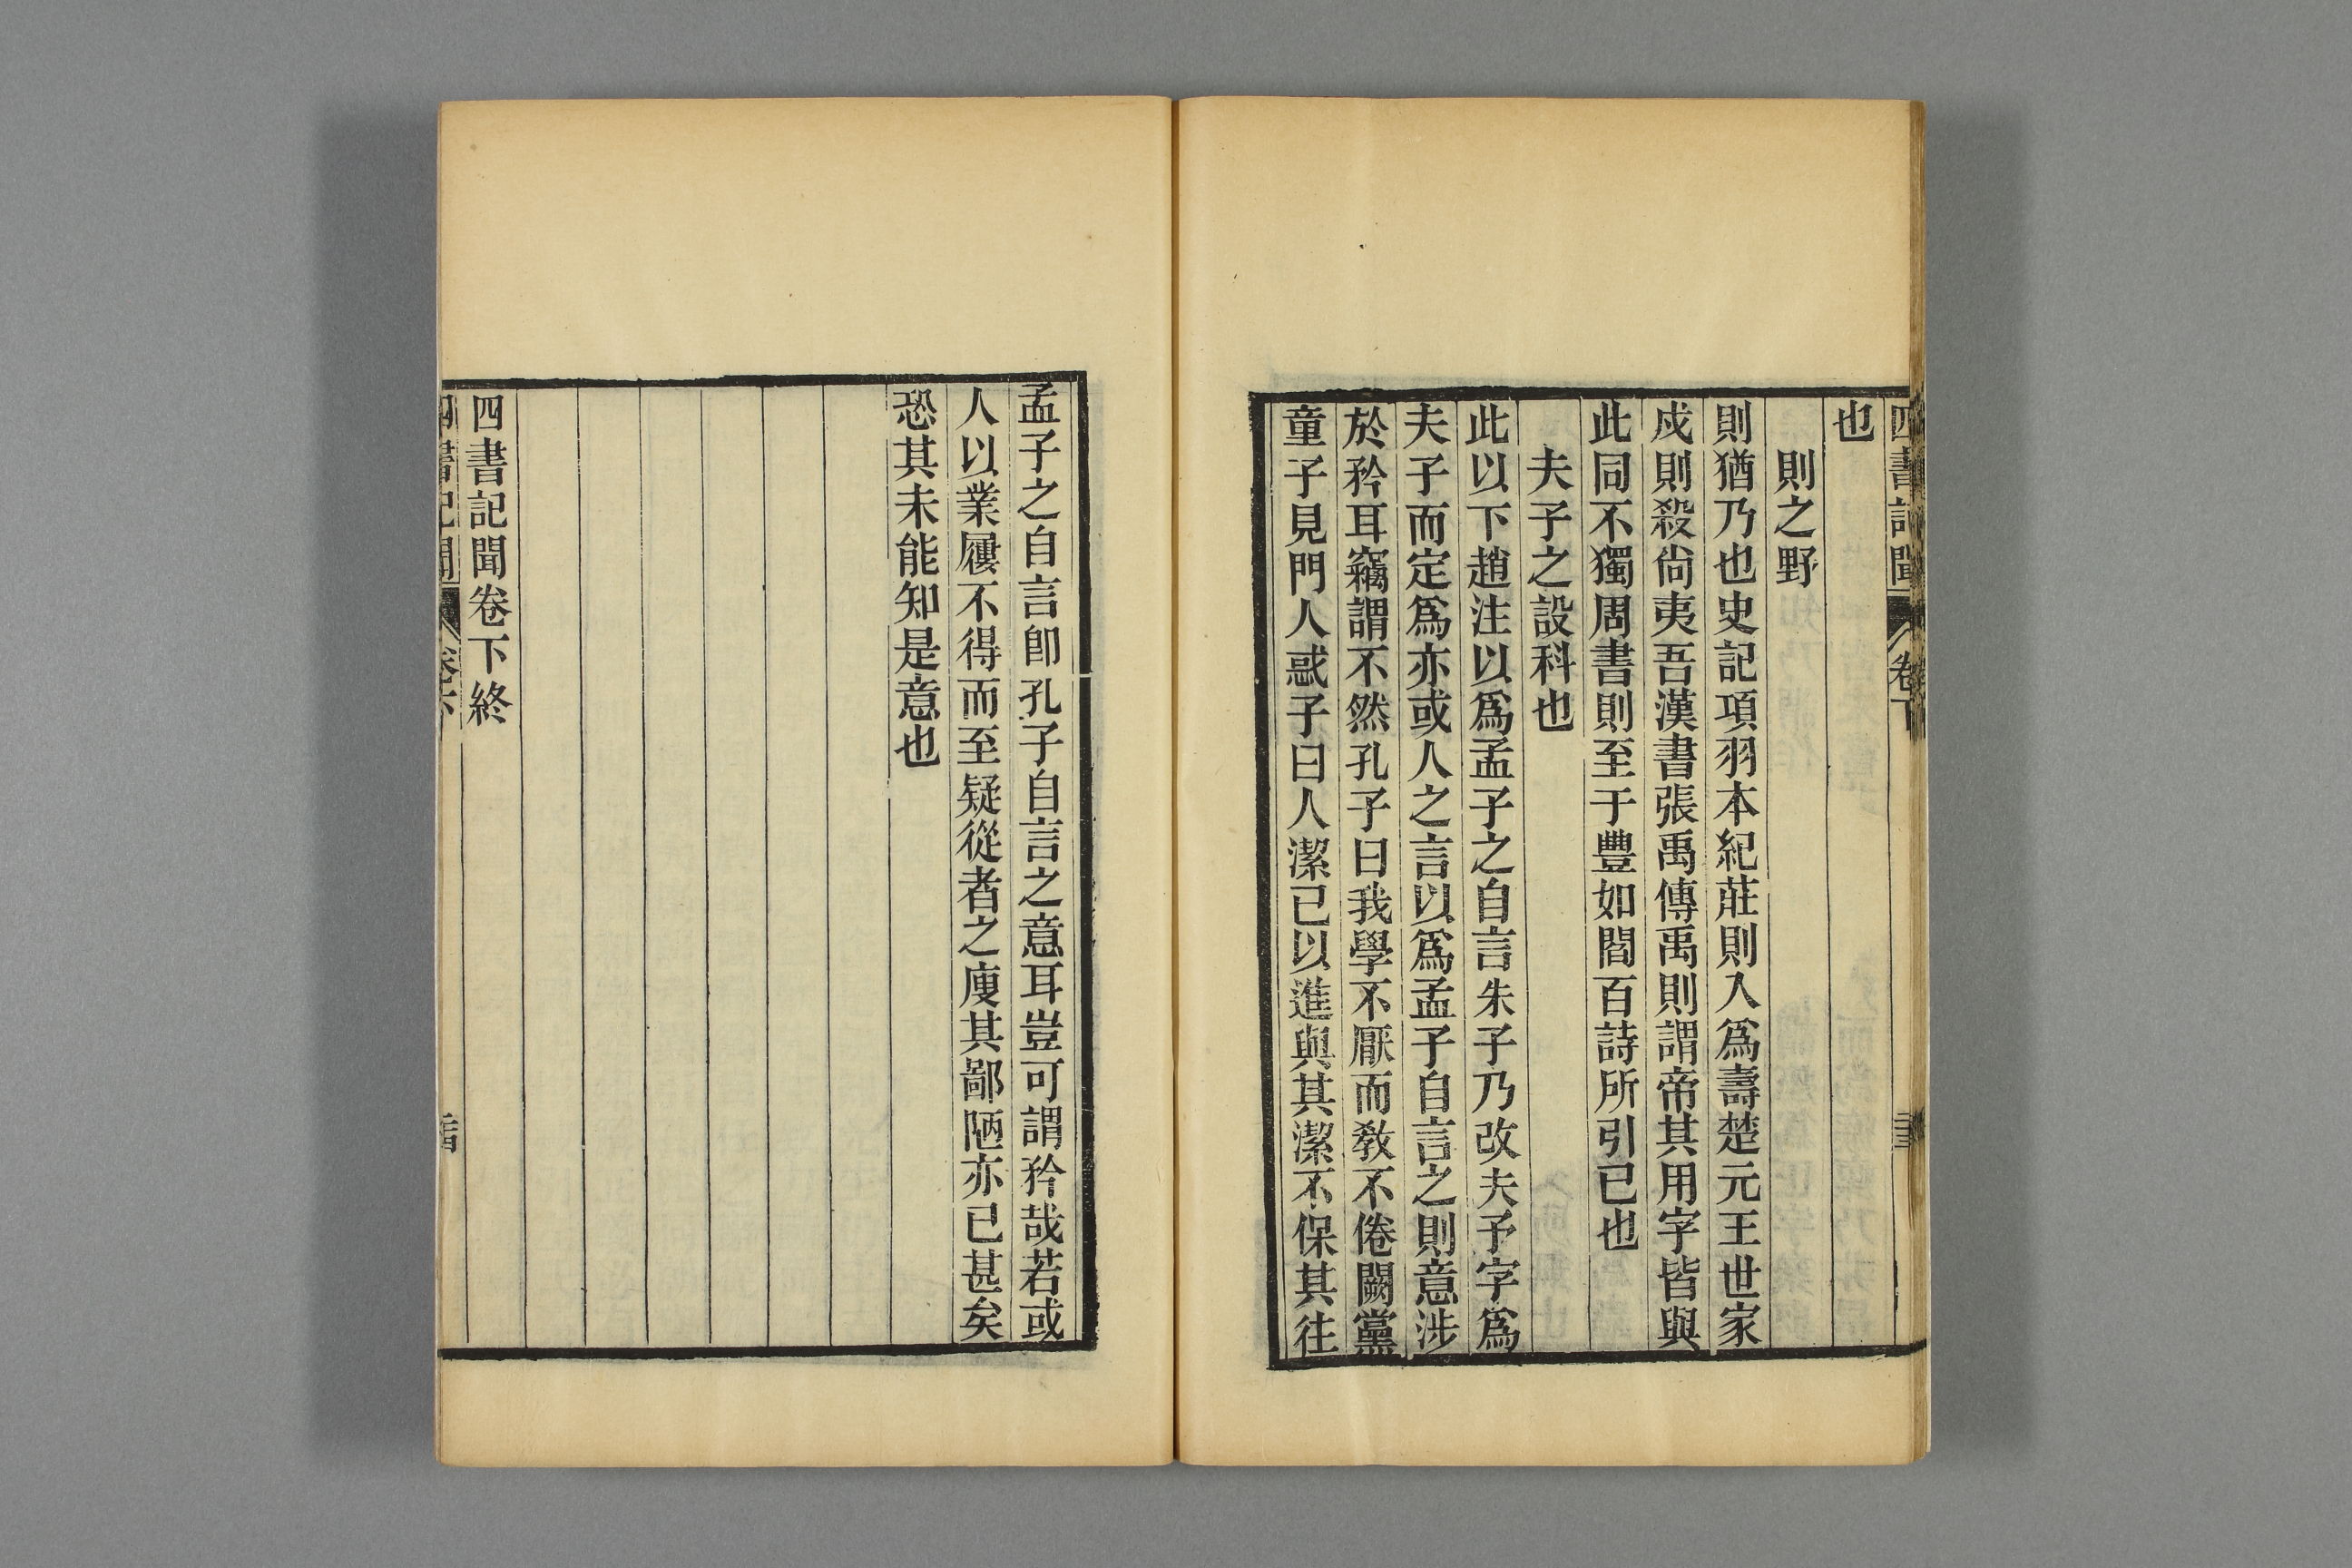 四書記聞 卷下
也
則之野
則猶乃也史記項羽本紀莊則入爲壽楚元王世家
戍則殺尙夷吾漢書張禹傳禹則謂帝其用字皆與
此同不獨周書則至于豐如閻百詩所引已也
夫子之設科也
此以下趙注以爲孟子之自言朱子乃改夫予字爲
夫子而定爲亦或人之言以爲孟子自言之則意涉
於矜耳竊謂不然孔子曰我學不厭而敎不倦闕黨
童子見門人惑子曰人潔己以進與其潔不保其往
孟子之自言卽孔子自言之意耳豈可謂矜哉若或
人以業屨不得而至疑從者之廋其鄙陋亦已甚矣
恐其未能知是意也
四書記聞卷下終
四書記聞 卷下